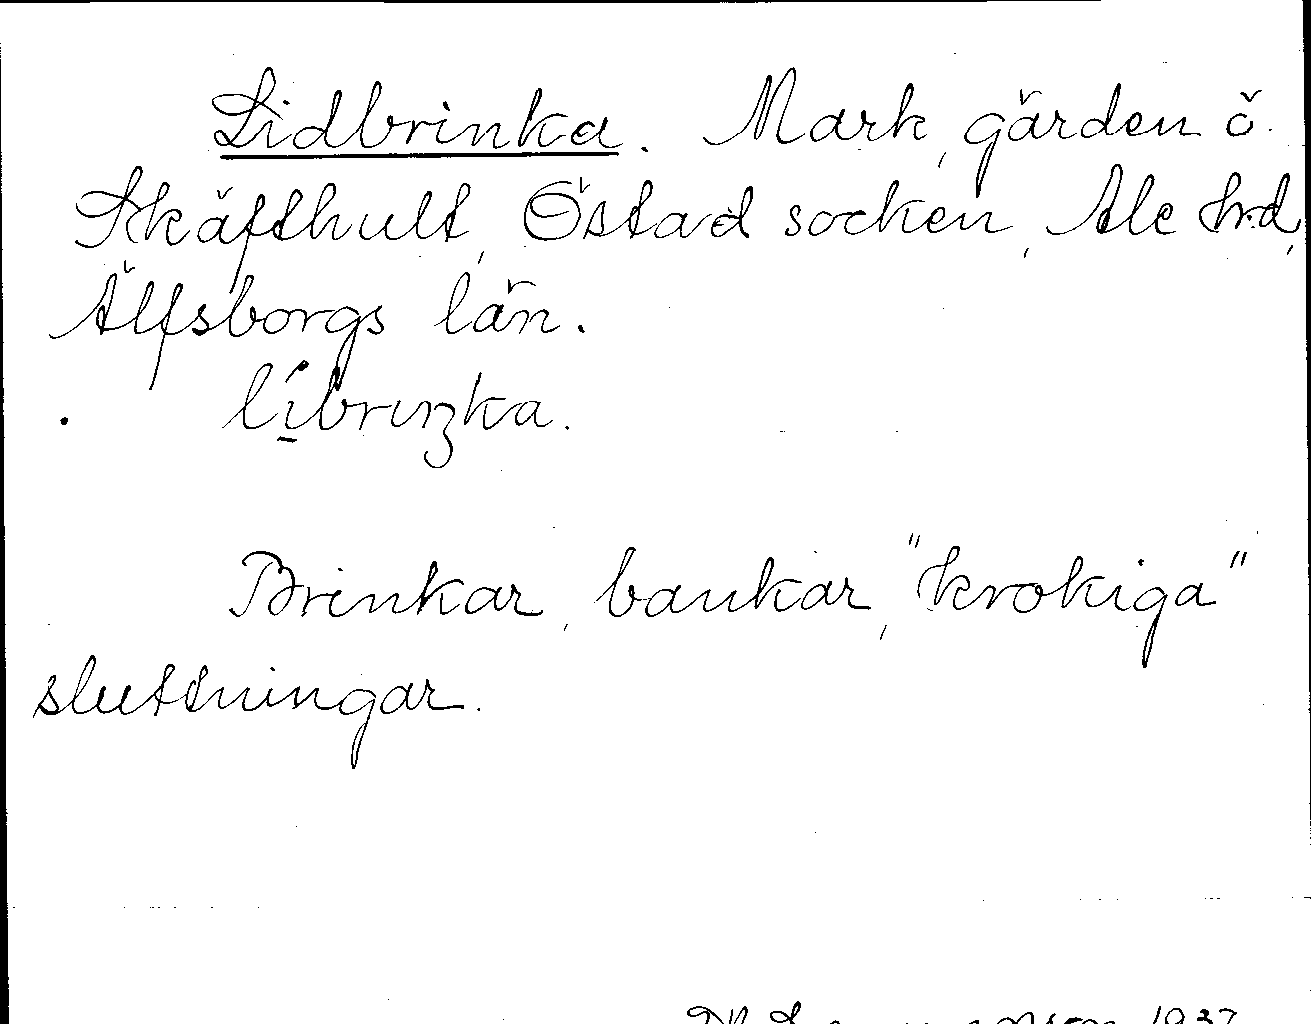 Lidbrinka. Mark, gärden ö.
Skäfthult, Östad socken, Ale hrd,
Älfsborgs län.
lí̱briŋka.
Brinkar, bankar, "krokiga"
sluttningar.
1937